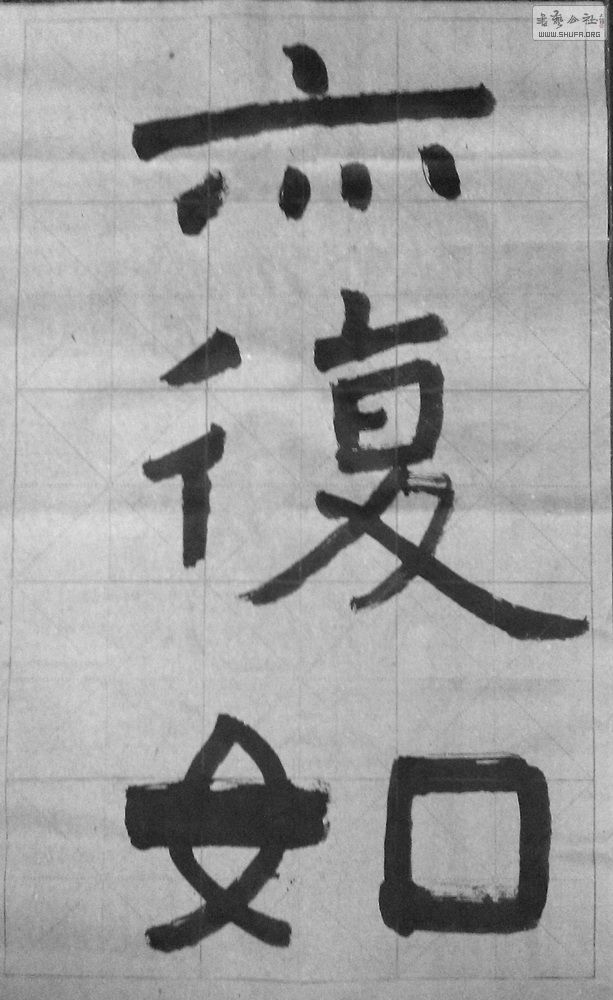 亦
復
如
书艺公社
WWW.SHUFA.ORG